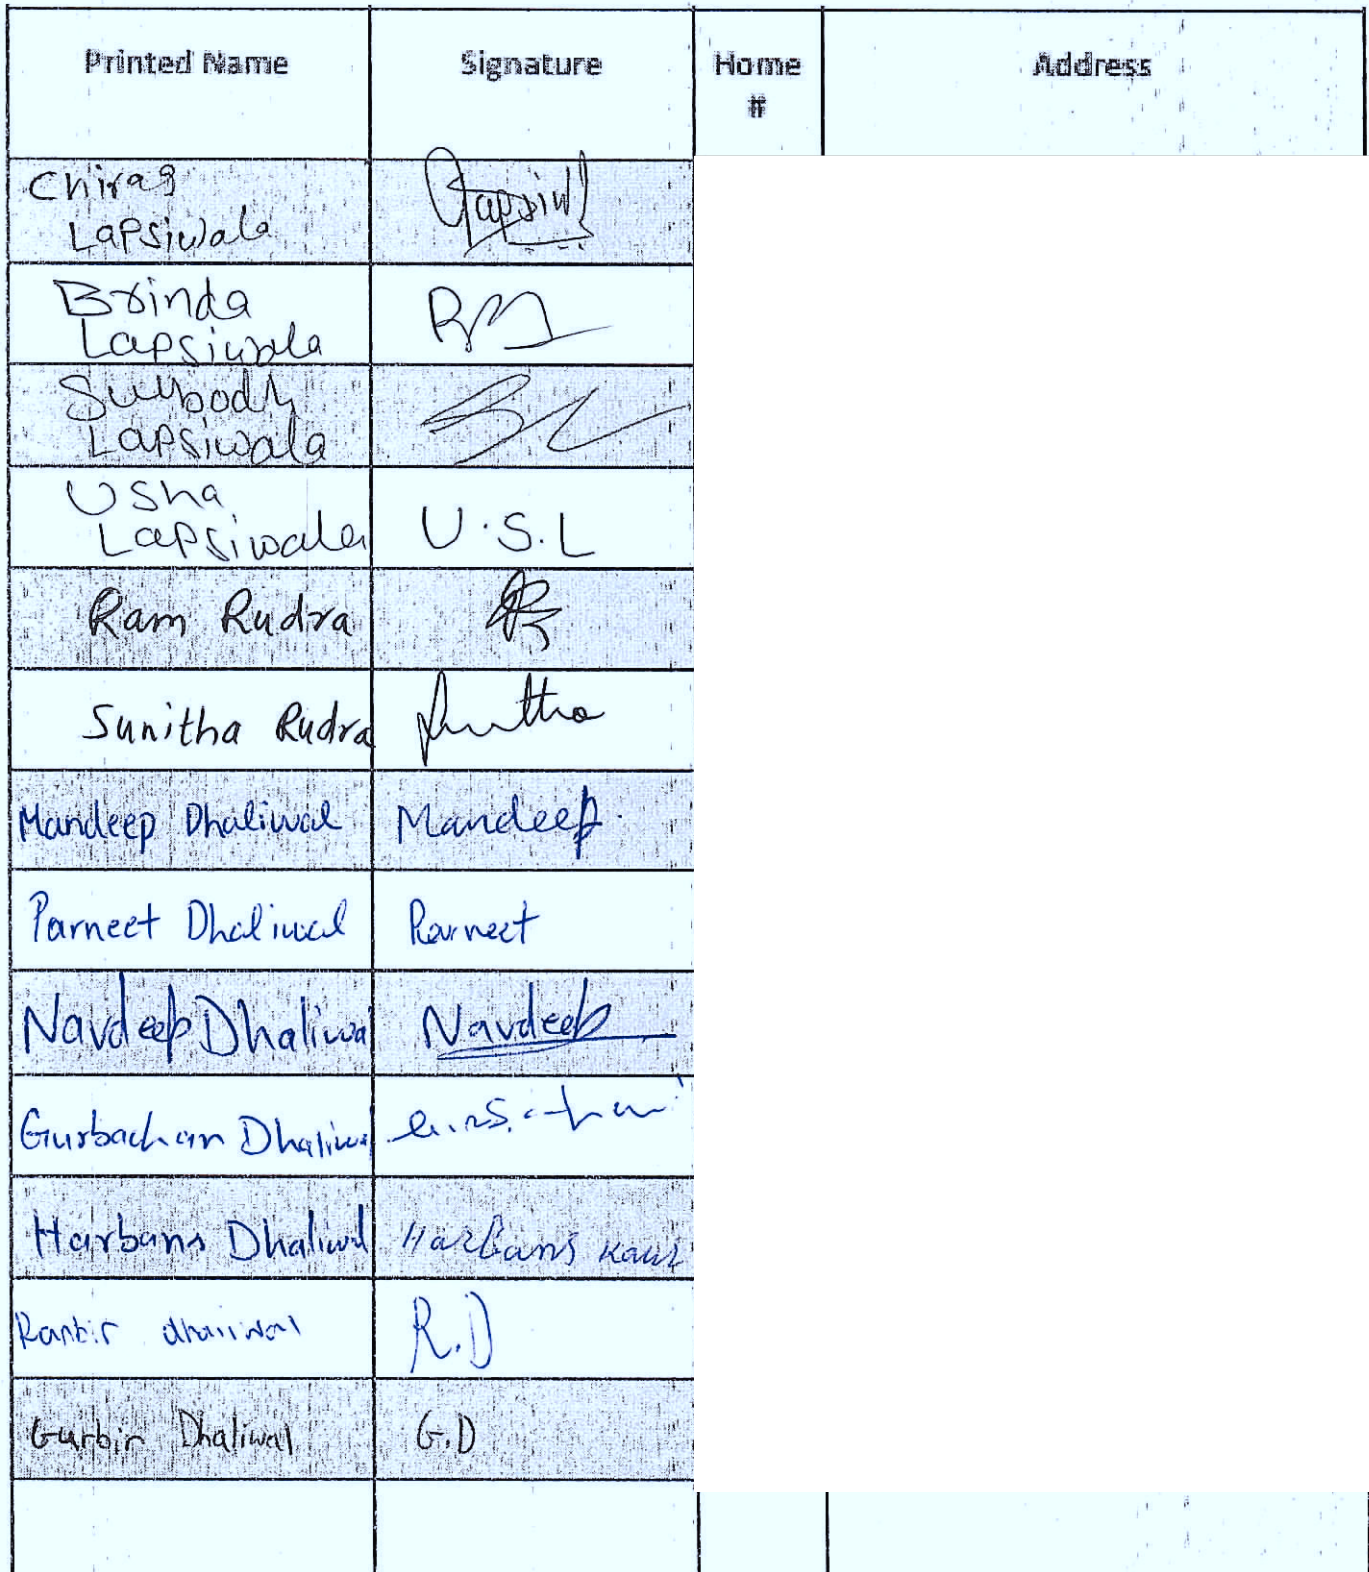 Printed Name Signature Home Address
#
Chirag
Lapsiwala
Brinda
Lapsiwala
Lapsiwala
Usha
Lapsiwala U.S.L
Ram Rudra
Sunitha Rudra
Mandeep Dhaliwal Mandeep
Parneet Dhaliwal Parneet
Navdeep Dhaliwal Navdeep
Gurbachan Dhaliwal
Harbans Dhaliwal Harbans Kaur
Ranbir dhaliwal R.D
Gurbir Dhaliwal G.D